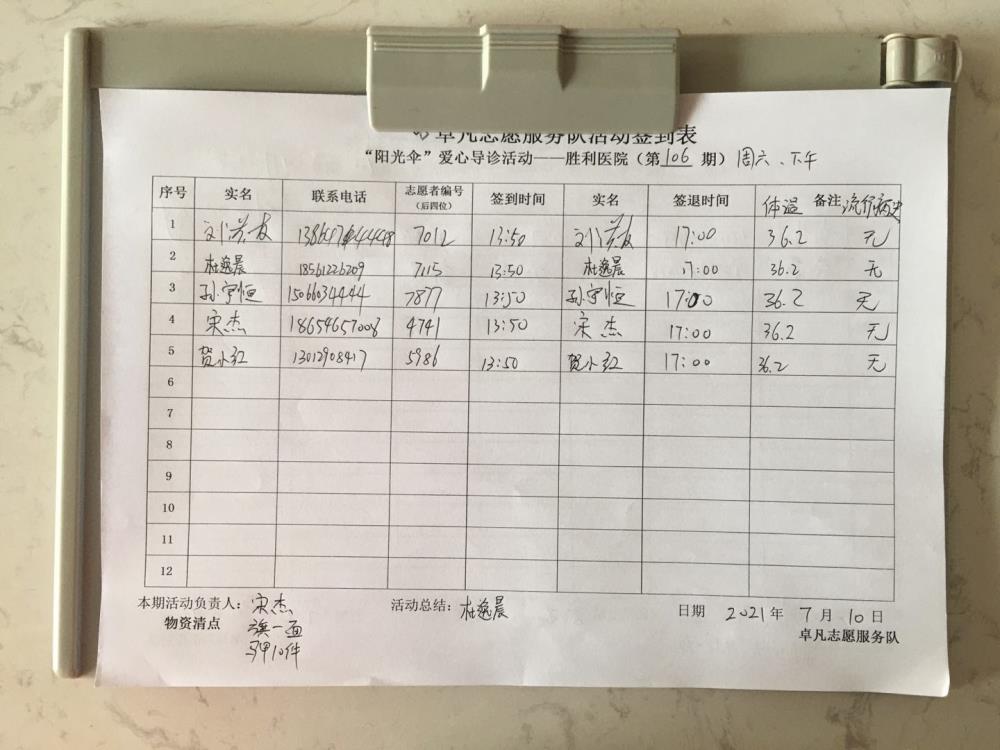 卓凡志愿服务队活动签到表
“阳光伞”爱心导诊活动——胜利医院（第 106 期）周六、下午
序号 实名 联系电话 志愿者编号（后四位） 签到时间 实名 签退时间 体温 备注 流行病史
1 7012 13:50 17:00 36.2 无
2 杜逸晨 18561226209 7115 13:50 杜逸晨 17:00 36.2 无
3 孙守恒 15066034444 7877 13:50 孙守恒 17:00 36.2 无
4 宋杰 18654657008 4741 13:50 宋杰 17:00 36.2 无
5 贺小红 13012908417 5986 13:50 贺小红 17:00 36.2 无
6
7
8
9
10
11
12
本期活动负责人：宋杰 活动总结：杜逸晨 日期 2021年 7月 10日
物资清点 旗一面 卓凡志愿服务队
马甲10件